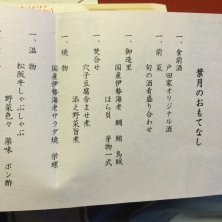 葉月のおもてなし
一、食前酒
戸田家オリジナル酒
一、前菜
旬の酒肴盛り合わせ
一、御造里
国産伊勢海老 鯛 鮪 烏賊
ほら貝 芽物一式
一、焚合せ
穴子豆腐含ませ煮
添え野菜旨煮
一、焼物
国産伊勢海老サラダ焼 栄螺
一、温物
松阪牛しゃぶしゃぶ
野菜色々 薬味 ポン酢